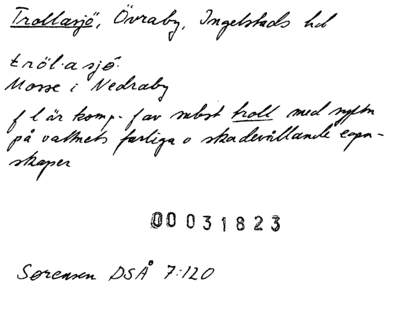 Trollasjö, Övraby, Ingelstads hd
tröl·a sjö·
Mosse i Nedraby
fl är komp.-f av subst troll med syftn
på vattnets farliga o skadevållande egen-
skaper
00031823
Sørensen DSÅ 7:120